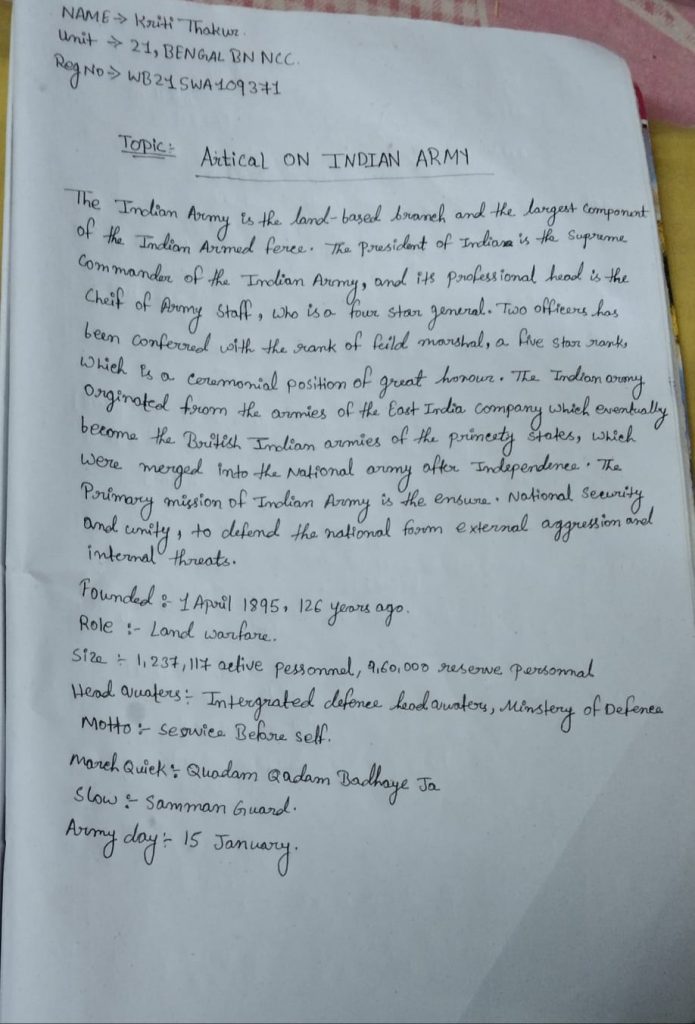 NAME → Kriti Thakur.
Unit → 21, BENGAL BN NCC.
Reg No → WB21SWA109371
Topic:- Artical ON INDIAN ARMY
The Indian Army is the land-based branch and the largest component
of the Indian Armed ferce. The president of Indiana is the Supreme
Commander of the Indian Army, and its professional head is the
Cheif of Army Staff, who is a four star general. Two officers has
been conferred with the rank of feild marshal, a five star rank,
which is a ceremonial position of great honour. The Indian army
orginated from the armies of the East India company which eventually
become the British Indian armies of the princety states, which
were merged into the National army after Independence. The
Primary mission of Indian Army is the ensure. National Security
and unity, to defend the national form external aggression and
internal threats.
Founded :- 1 April 1895, 126 years ago.
Role :- Land warfare.
Size :- 1,237,117 active pessonnel, 9,60,000 reserve personnal
Head Quaters :- Intergrated defence head quaters, Minstery of Defence
Motto :- service Before self.
March Quick :- Quadam Qadam Badhaye Ja
Slow :- Samman Guard.
Army day :- 15 January.